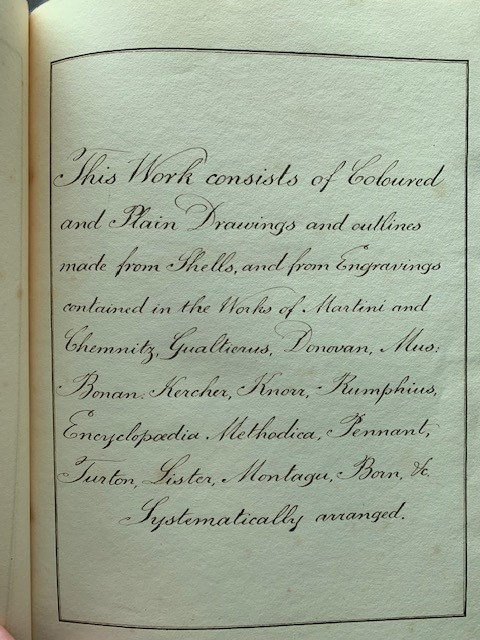 This Work consists of Coloured
and Plain Drawings and outlines
made from Shells, and from Engravings
contained in the Works of Martini and
Chemnitz, Gualtierus, Donovan, Mus:
Bonan: Kercher, Knorr, Rumphius,
Encyclopœdia Methodica, Pennant,
Turton, Lister, Montagu, Born, &c.
Systematically arranged.